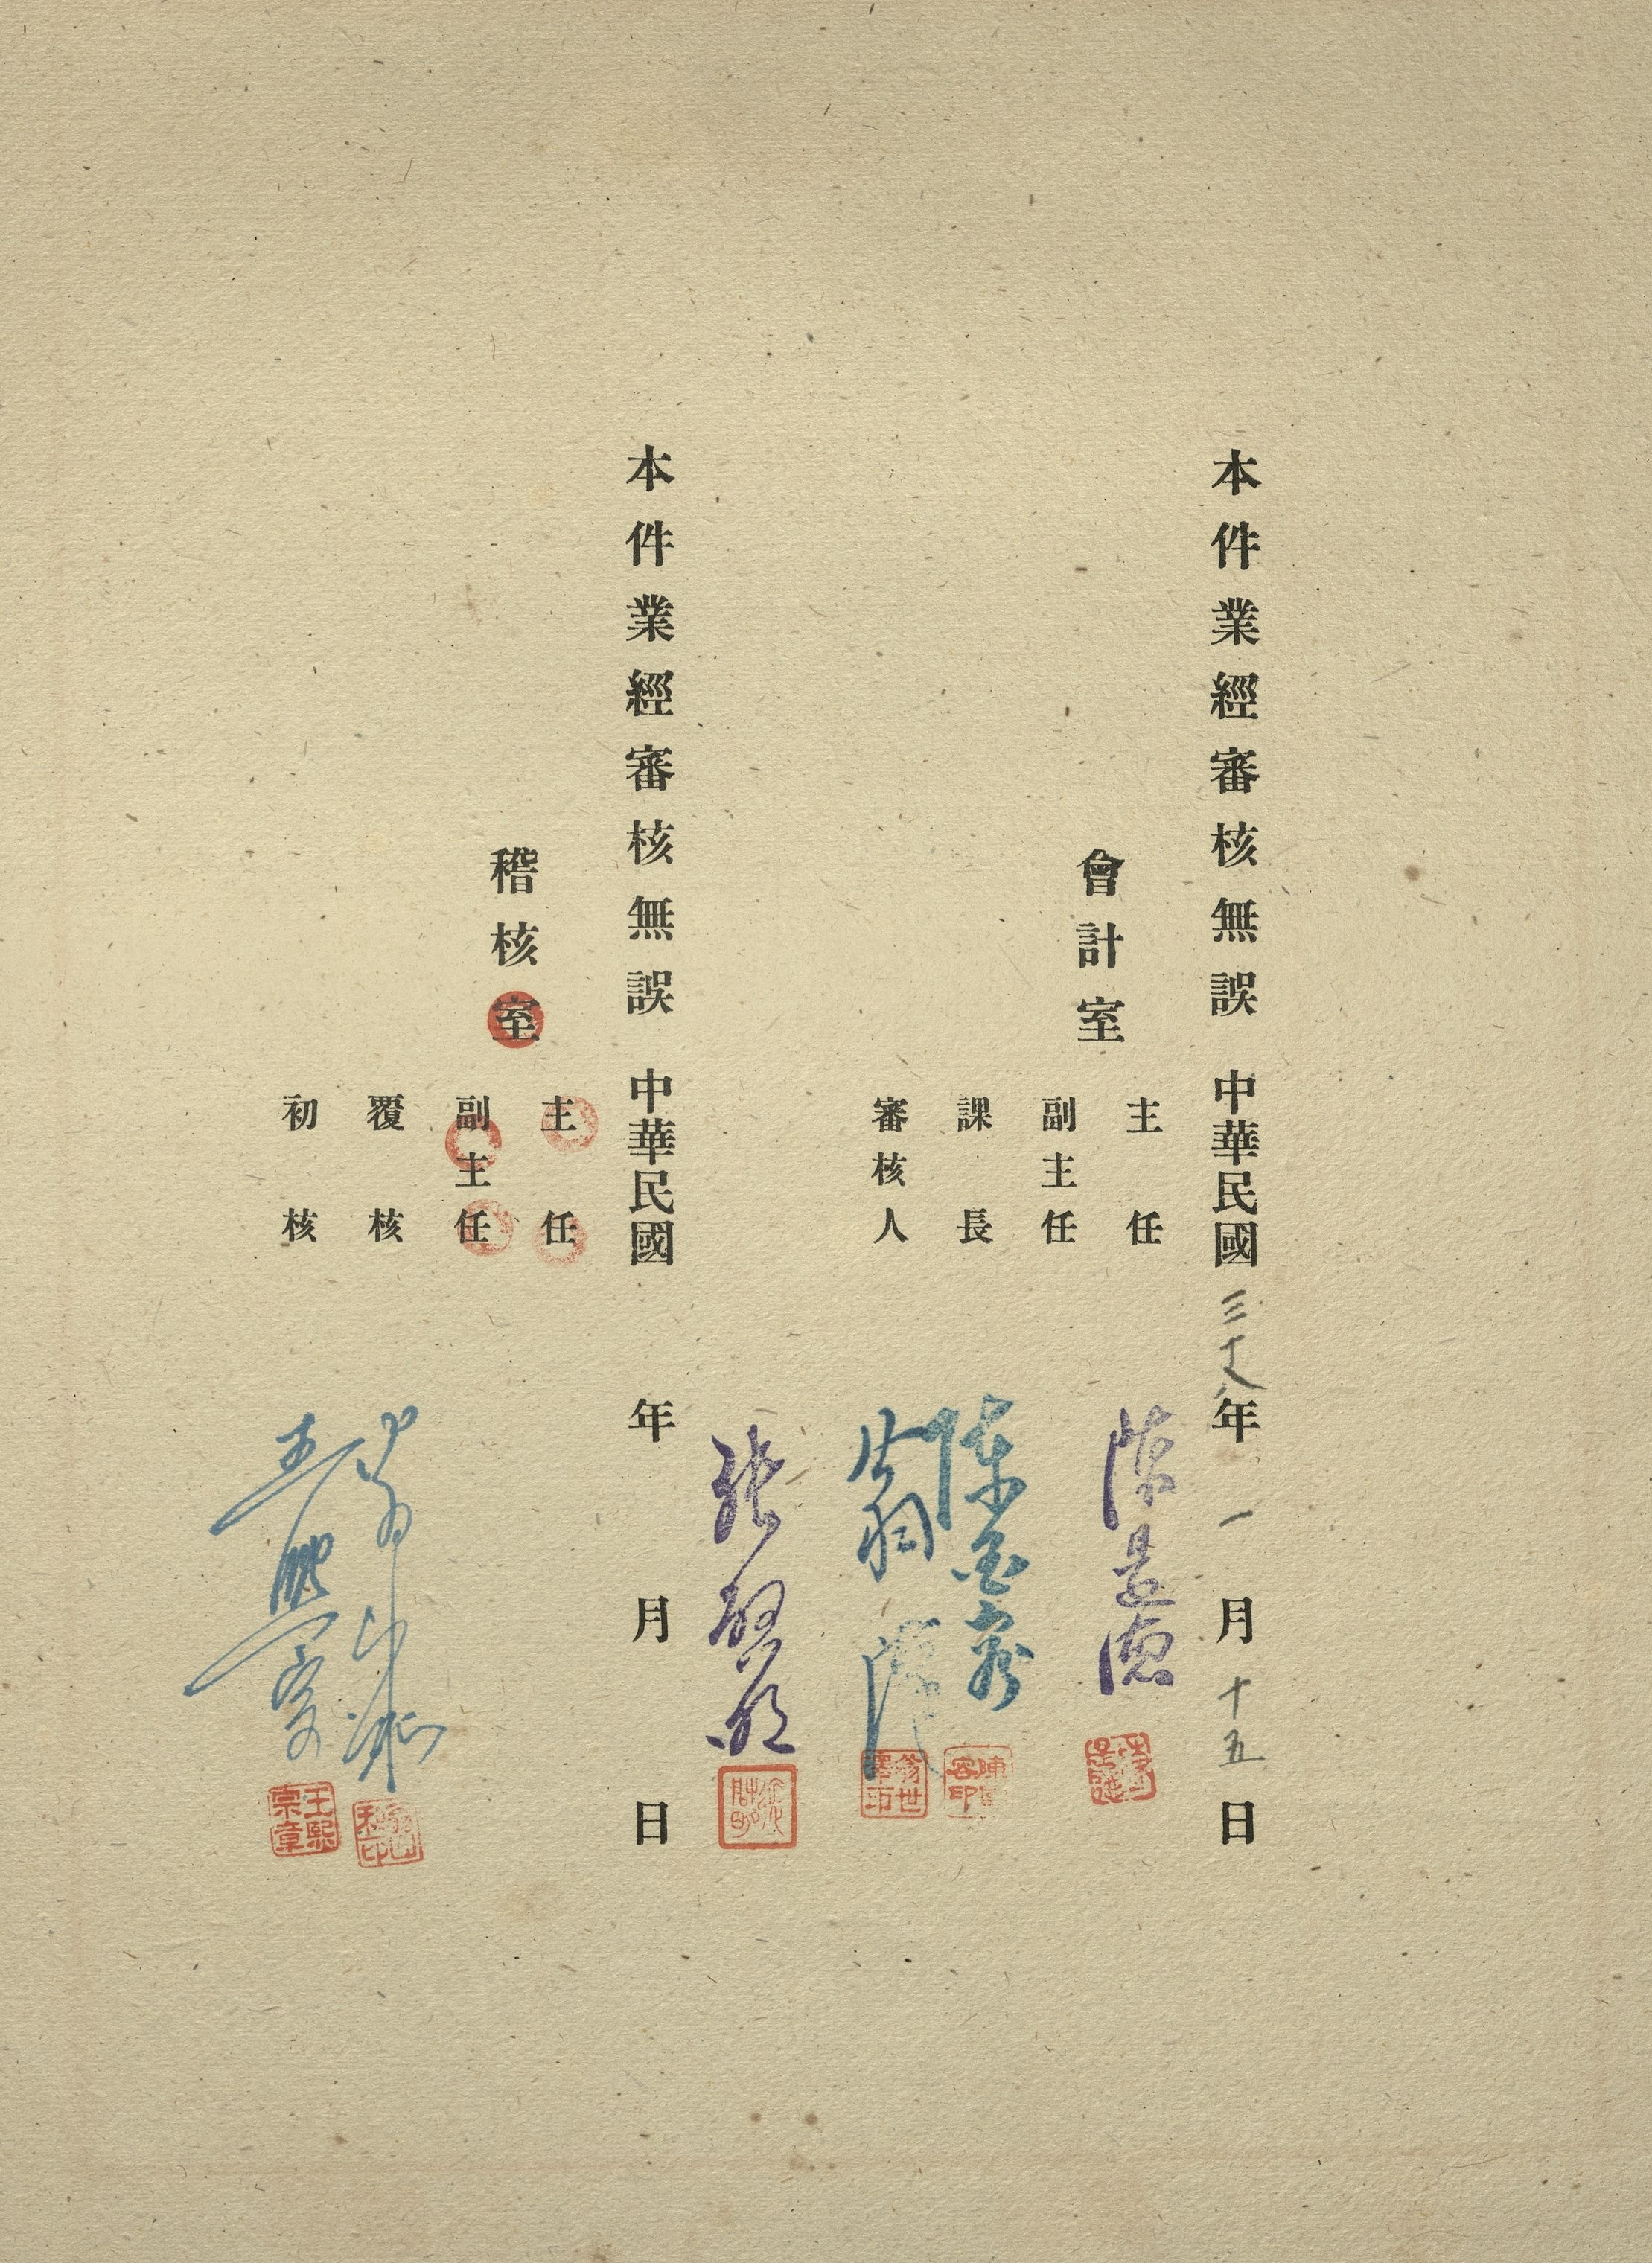 本件業經審核無誤 中華民國三十八年一月十五日
會計室
主任
副主任
課長
審核人
陳
翁
翁世澤印
本件業經審核無誤 中華民國 年 月 日
稽核室
主任
副主任
覆核
初核
王熙宗
王熙宗章